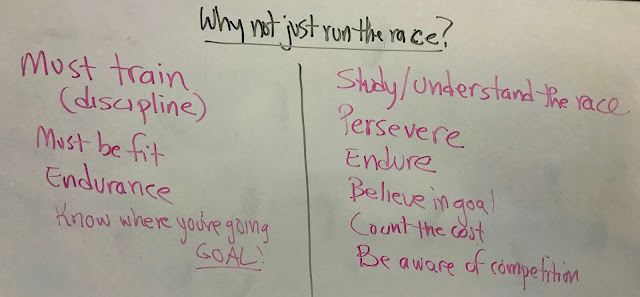 Why not just run the race?
Must train
(discipline)
Must be fit
Endurance
Know where you're going
GOAL!
Study/understand the race
Persevere
Endure
Believe in goal
Count the cost
Be aware of competition